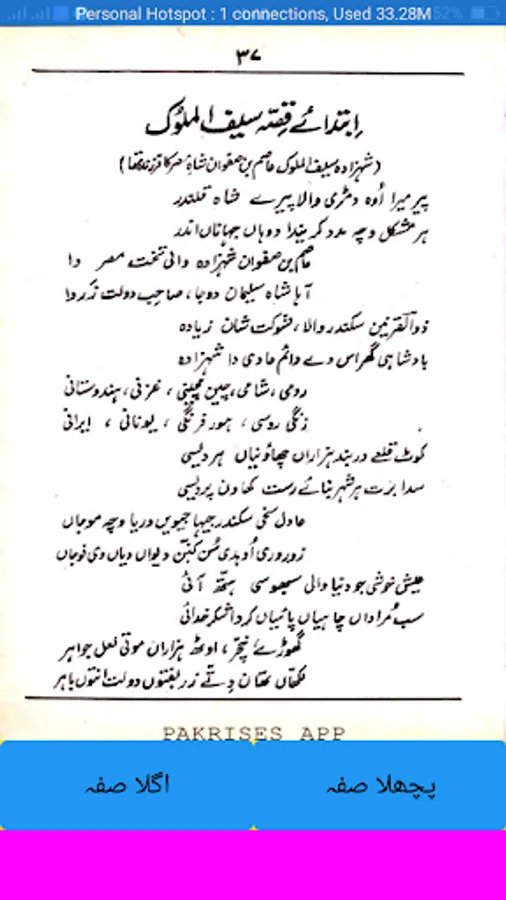 Personal Hotspot : 1 connections, Used 33.28M 52%
۳۷
ابتدائے قصّہ سیف الملوک
(شہزادہ سیف الملوک عاصم بن صفوان شاہ مصر کا فرزند تھا)
پیر میرا اوہ دمڑی والا پیرے شاہ قلندر
ہر مشکل وچہ مدد کریندا دوہاں جہاناں اندر
عاصم بن صفوان شہزادہ والی تخت مصر دا
آہا شاہ سلیمان دوجا، صاحب دولت زر دا
ذوالقرنین سکندر والا، شوکت شان زیادہ
بادشاہی گھر اس دے دائم عادی دا شہزادہ
رومی، شامی، چین مچینی، عربی، ہندوستانی
زنگی روسی، ہور فرنگی، یونانی، ایرانی
کوٹ قلعے دربند ہزاراں چھاؤنیاں ہر دیسی
سدا برت ہر شہر بنائے رست کھاون پردیسی
عادل سخی سکندر جیہا جیویں دریا وچہ موجاں
زور وری اوہدی سُن کنبن دیواں دیاں وی فوجاں
عیش خوشی جو دنیا والی سبھو سی ہتھ آئی
سب مُراداں چاہیاں پائیاں کردا شکر خدائی
گھوڑے خچر، اوٹھ ہزاراں موتی لعل جواہر
لکھاں تھان دِتے زربفتوں دولت انتوں باہر
PAKRISES APP
اگلا صفہ
پچھلا صفہ